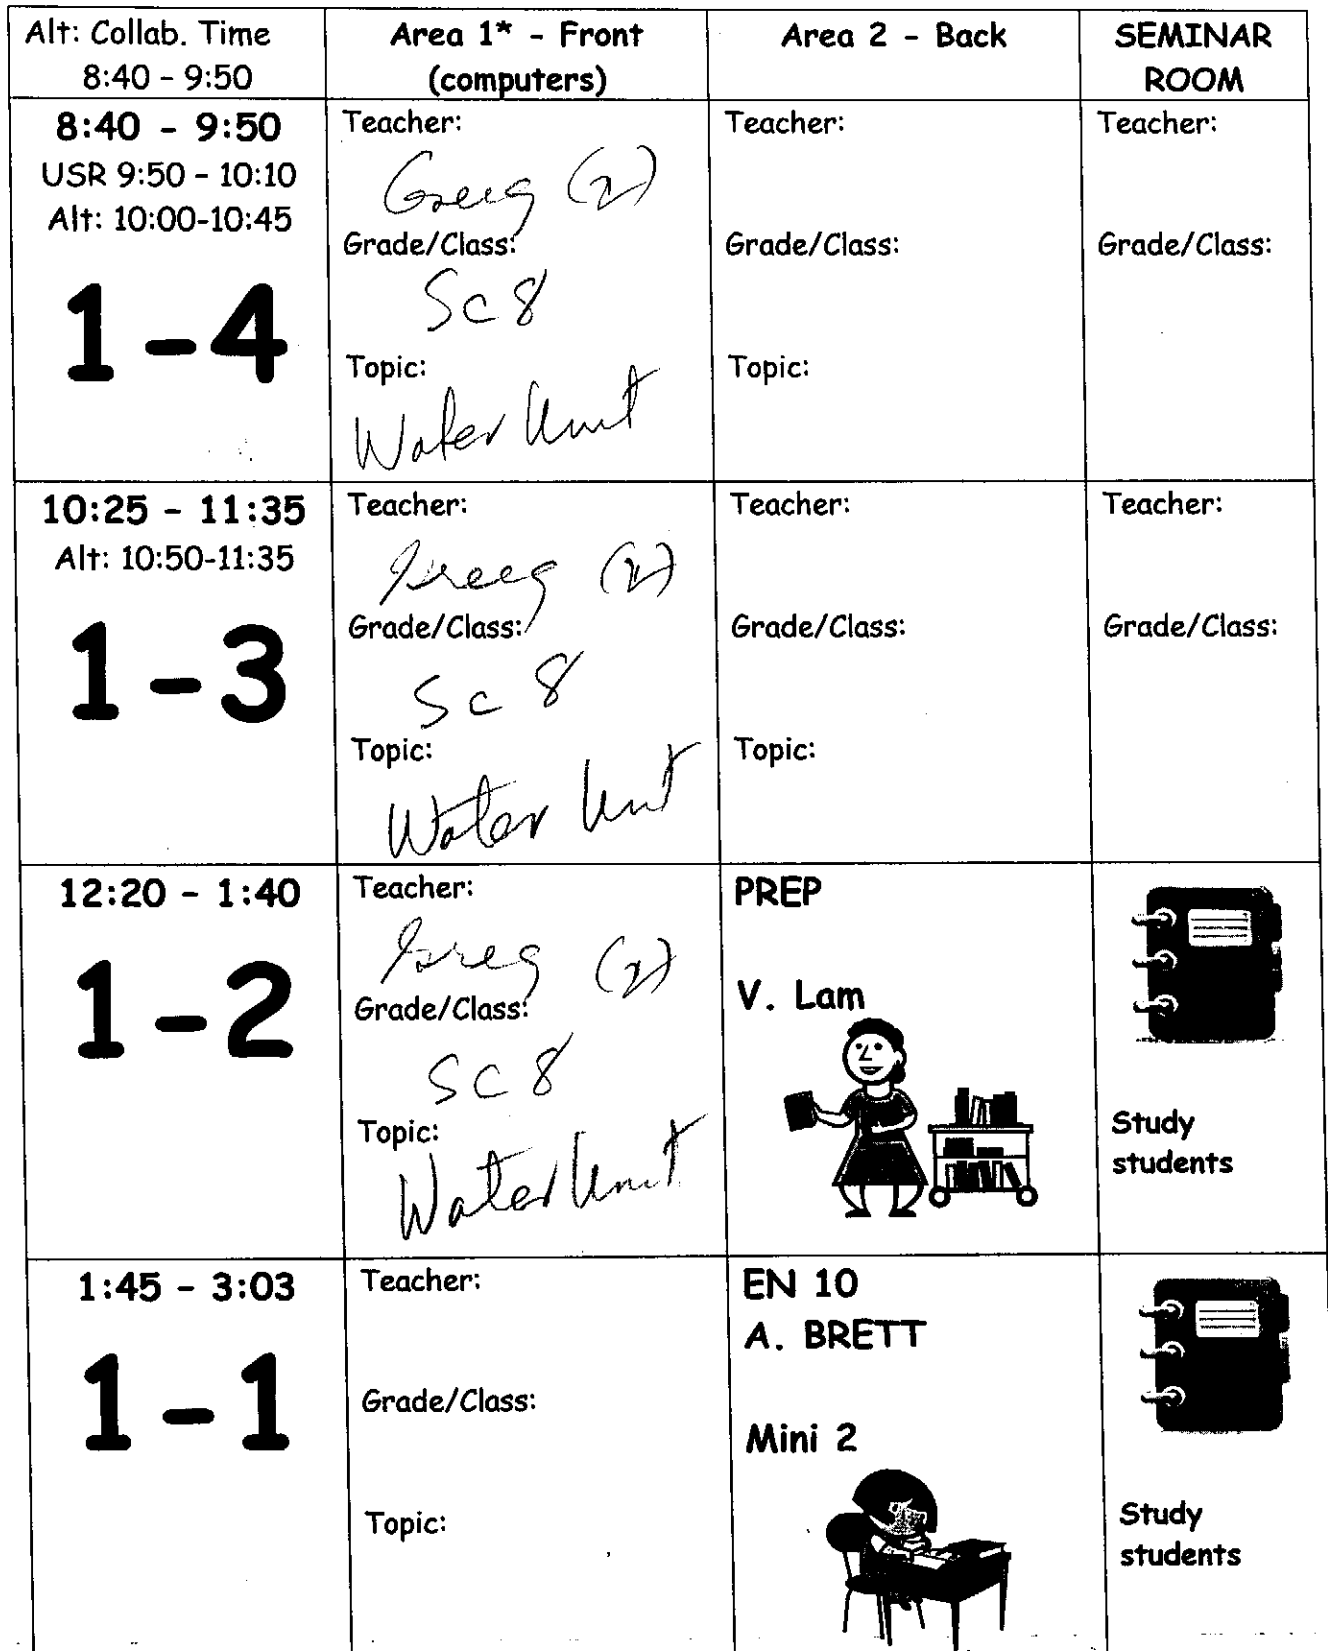 Alt: Collab. Time
8:40 - 9:50
Area 1* - Front
(computers)
Area 2 - Back
SEMINAR
ROOM
8:40 - 9:50
USR 9:50 - 10:10
Alt: 10:00-10:45
1-4
Teacher:
Grade/Class:
Sc 8
Topic:
Water Unit
Teacher:
Grade/Class:
Topic:
Teacher:
Grade/Class:
10:25 - 11:35
Alt: 10:50-11:35
1-3
Teacher:
Grade/Class:
Sc 8
Topic:
Water Unit
Teacher:
Grade/Class:
Topic:
Teacher:
Grade/Class:
12:20 - 1:40
1-2
Teacher:
Greg
Grade/Class:
Sc 8
Topic:
Water Unit
PREP
V. Lam
Study
students
1:45 - 3:03
1-1
Teacher:
Grade/Class:
Topic:
EN 10
A. BRETT
Mini 2
Study
students